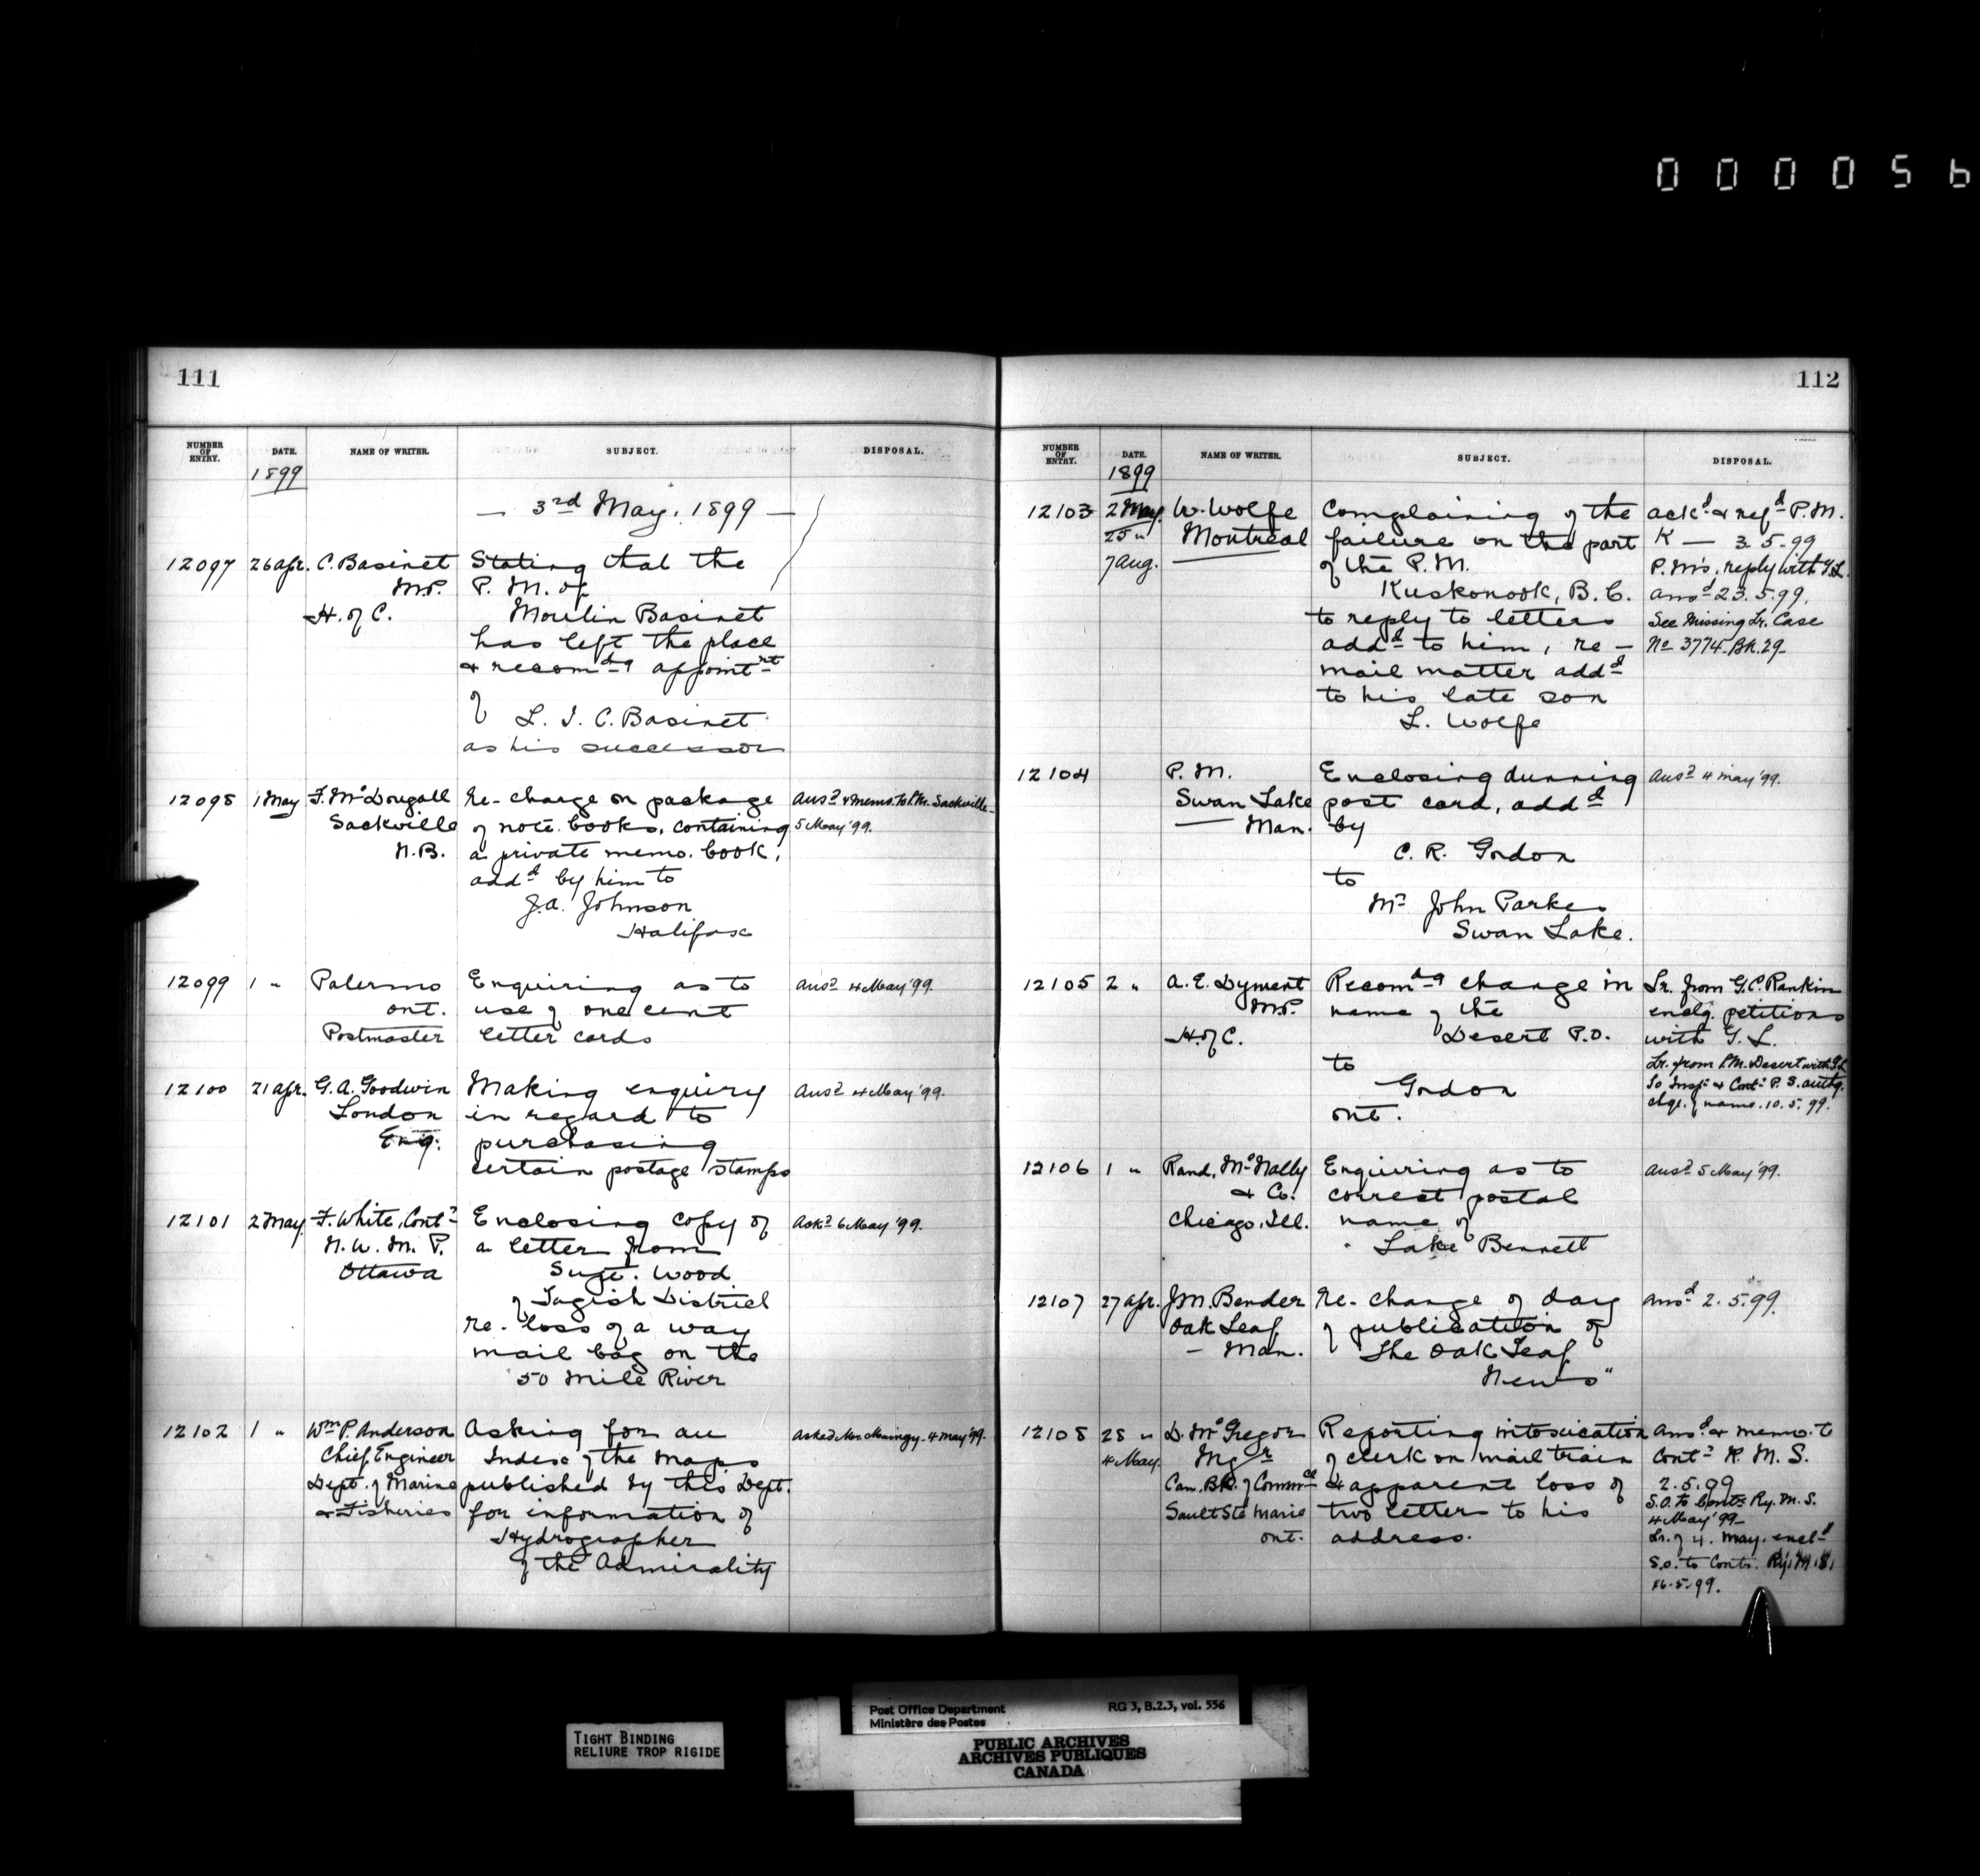 000056
111
NUMBER OF ENTRY. DATE. NAME OF WRITER. SUBJECT. DISPOSAL.
1899
— 3rd May, 1899 —
12097 26 Apr. C. Basinet Stating that the
M.P. P. M. of
H. of C. Moulin Basinet
has left the place
& recomdg appointmt
of L. J. C. Basinet
as his successor
12098 1 May F. McDougall Re- charge on package Ansd & Memo. to P.M. Sackville
Sackville of note books, containing 5 May '99.
N.B. a private memo. book,
addd by him to
J.A. Johnson
Halifax
12099 1 " Palermo Enquiring as to Ansd 4 May '99.
Ont. use of one cent
Postmaster letter cards
12100 21 Apr. G. A. Goodwin Making enquiry Ansd 4 May '99.
London in regard to
Eng. purchasing
certain postage stamps
12101 2 May F. White, Contr Enclosing copy of Ackd 6 May '99.
N. W. M. P. a letter from
Ottawa Supt. Wood
of Tagish District
re- loss of a way
mail bag on the
50 Mile River
12102 1 " Wm P. Anderson Asking for an
Chief Engineer Index of the Maps
Dept. of Marine published by this Dept.
& Fisheries for information of
Hydrographer
of the Admirality
112
NUMBER OF ENTRY. DATE. NAME OF WRITER. SUBJECT. DISPOSAL.
1899
12103 2 May W. Wolfe Complaining of the ackd & refd P.M.
25 " Montreal failure on the part K — 3.5.99
7 Aug. of the P. M. P.M's. reply with G.L.
Kuskonook, B. C. ansd 23.5.99.
to reply to letters See Missing Lr. Case
addd to him, re — No 3774 Bk. 29
mail matter addd
to his late son
L. Wolfe
12104 P. M. Enclosing dunning Ansd 4 May '99.
Swan Lake post card, addd
Man. by
C. R. Gordon
to
Mr John Parkes
Swan Lake.
12105 2 " A. E. Dyment Recomdg change in Lr. from G.C. Rankin
M.P. name of the enclg. petitions
H. of C. Desert P.O. with G. L.
to Lr. from P.M. Desert with G.L.
Gordon So Inspr & Contr P. S. authg.
Ont. chge. of name. 10.5.99.
12106 1 " Rand, McNally Enquiring as to Ansd 5 May '99.
& Co. correct postal
Chicago, Ill. name of
Lake Bennett
12107 27 Apr. J.M. Bender Re- change of day Ansd 2.5.99.
Oak Leaf of publication of
— Man. "The Oak Leaf
News"
12108 28 " D. McGregor Reporting intoxication Ansd & memo. to
4 May. Mgr of clerk on mail train Contr R. M. S.
Can. Bk. of Commce & apparent loss of 2.5.99
Sault Ste Marie two letters to his S.O. to Contr. Ry. M. S.
Ont. address. 4 May '99
Lr. of 4. May. encld
S.O. to Contr. Ry. M. S.
16.5.99.
TIGHT BINDING
RELIURE TROP RIGIDE
Post Office Department RG 3, B.2.3, vol. 556
Ministère des Postes
PUBLIC ARCHIVES
ARCHIVES PUBLIQUES
CANADA